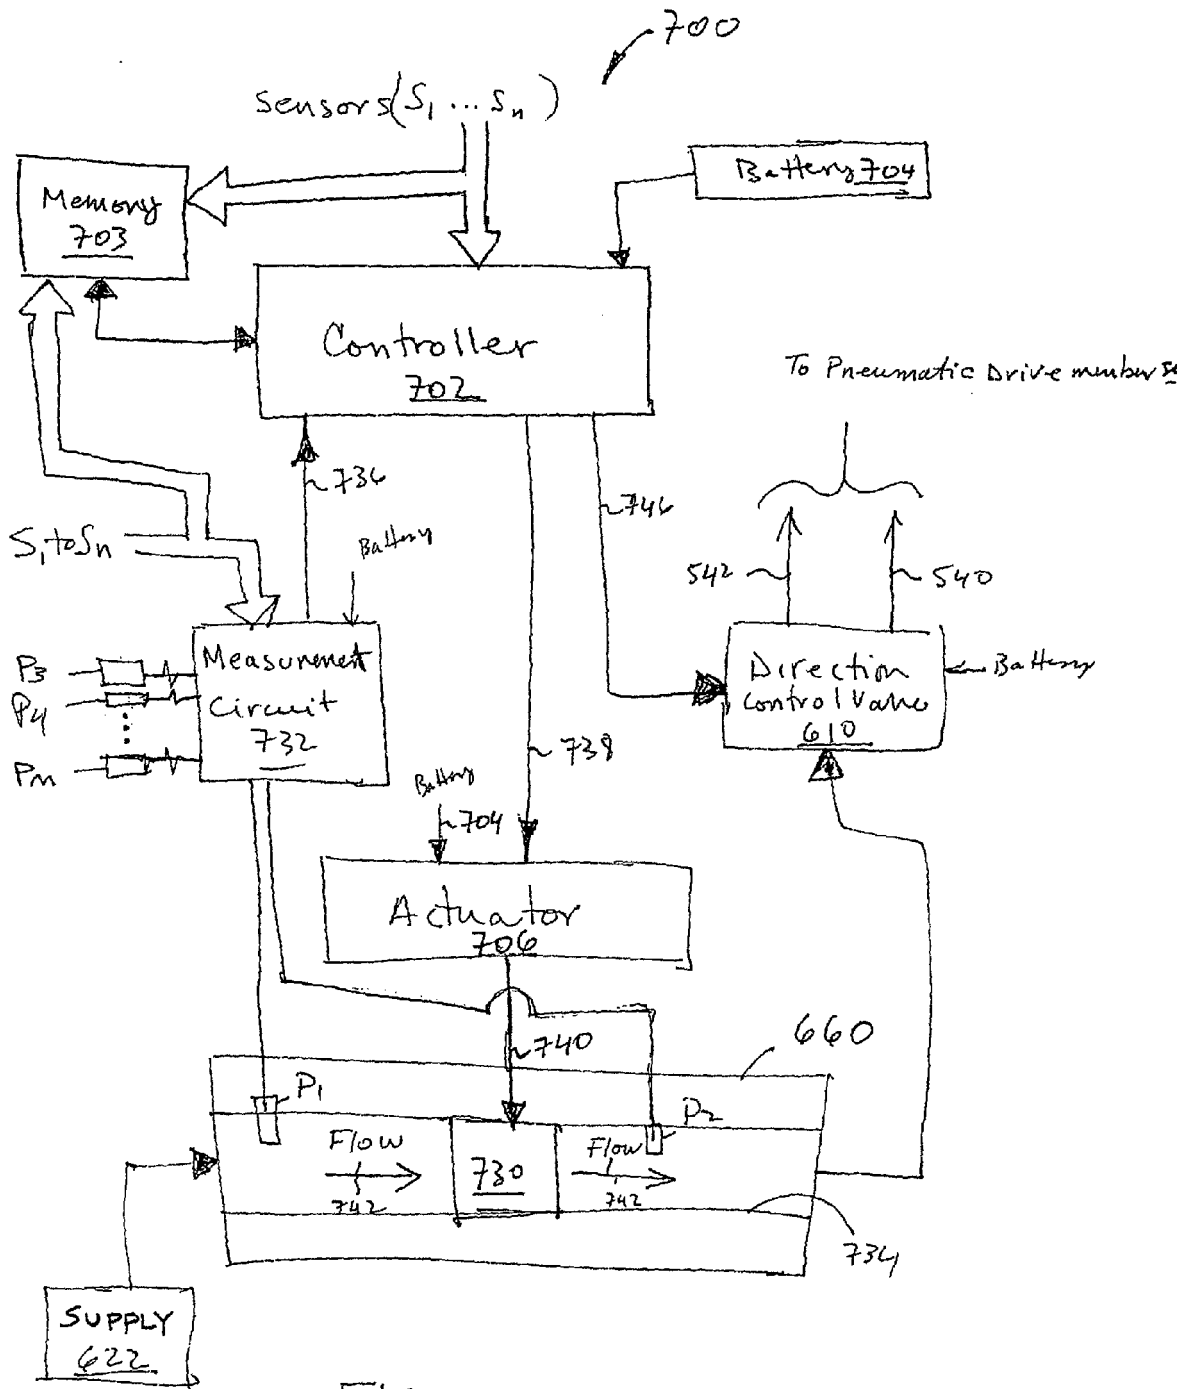 700
Sensors(S1 ... Sn)
Battery 704
Memory
703
Controller
702
To Pneumatic Drive member
736
746
S1 to Sn
Battery
542
540
P3
P4
Pm
Measurement
Circuit
732
Direction
Control Valve
610
Battery
738
Battery
704
Actuator
706
740
660
P1
P2
Flow
742
730
Flow
742
734
SUPPLY
622